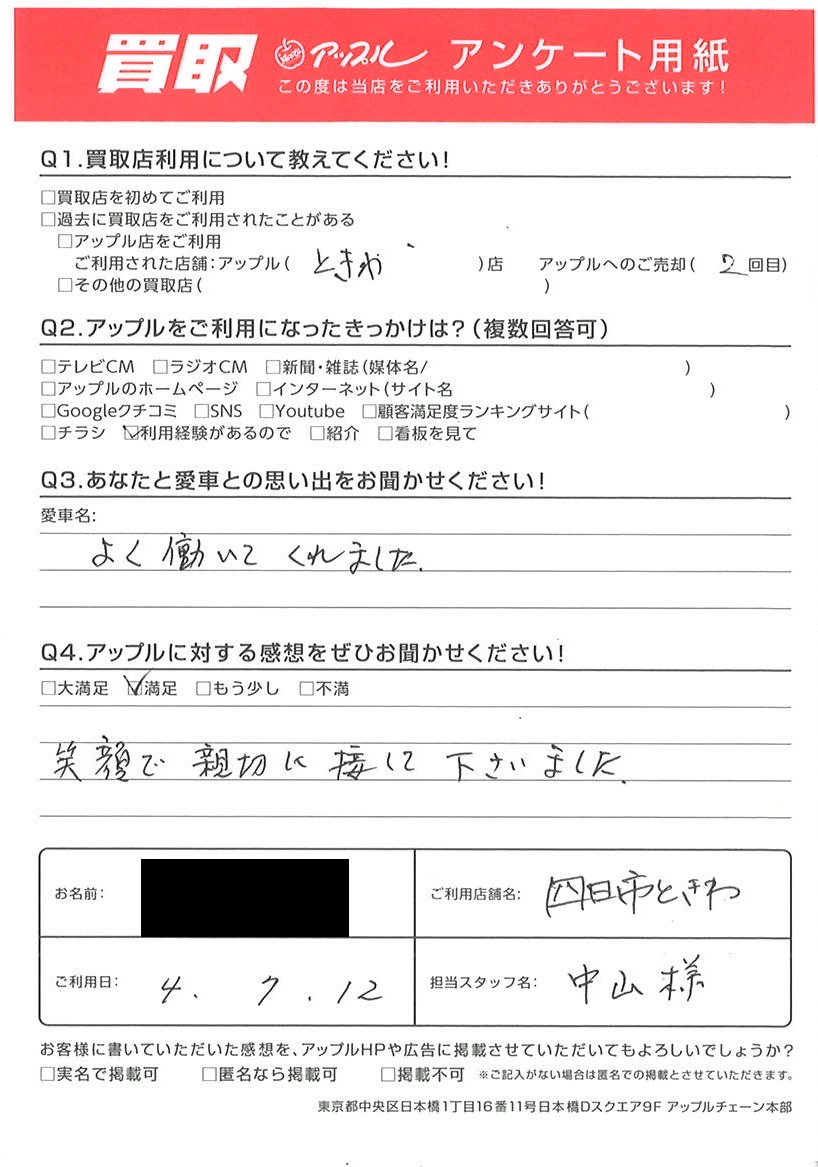 買取 アップル アンケート用紙
この度は当店をご利用いただきありがとうございます!
Q1.買取店利用について教えてください!
□買取店を初めてご利用
□過去に買取店をご利用されたことがある
□アップル店をご利用
ご利用された店舗:アップル( ときわ )店 アップルへのご売却( 2 回目)
□その他の買取店( )
Q2.アップルをご利用になったきっかけは?(複数回答可)
□テレビCM □ラジオCM □新聞・雑誌(媒体名/ )
□アップルのホームページ □インターネット(サイト名 )
□Googleクチコミ □SNS □Youtube □顧客満足度ランキングサイト( )
□チラシ ☑利用経験があるので □紹介 □看板を見て
Q3.あなたと愛車との思い出をお聞かせください!
愛車名:
よく働いてくれました.
Q4.アップルに対する感想をぜひお聞かせください!
□大満足 ☑満足 □もう少し □不満
笑顔で親切に接して下さいました.
お名前:
ご利用店舗名: 四日市ときわ
ご利用日: 4. 7. 12
担当スタッフ名: 中山様
お客様に書いていただいた感想を、アップルHPや広告に掲載させていただいてもよろしいでしょうか?
□実名で掲載可 □匿名なら掲載可 □掲載不可 ※ご記入がない場合は匿名での掲載とさせていただきます。
東京都中央区日本橋1丁目16番11号日本橋Dスクエア9F アップルチェーン本部